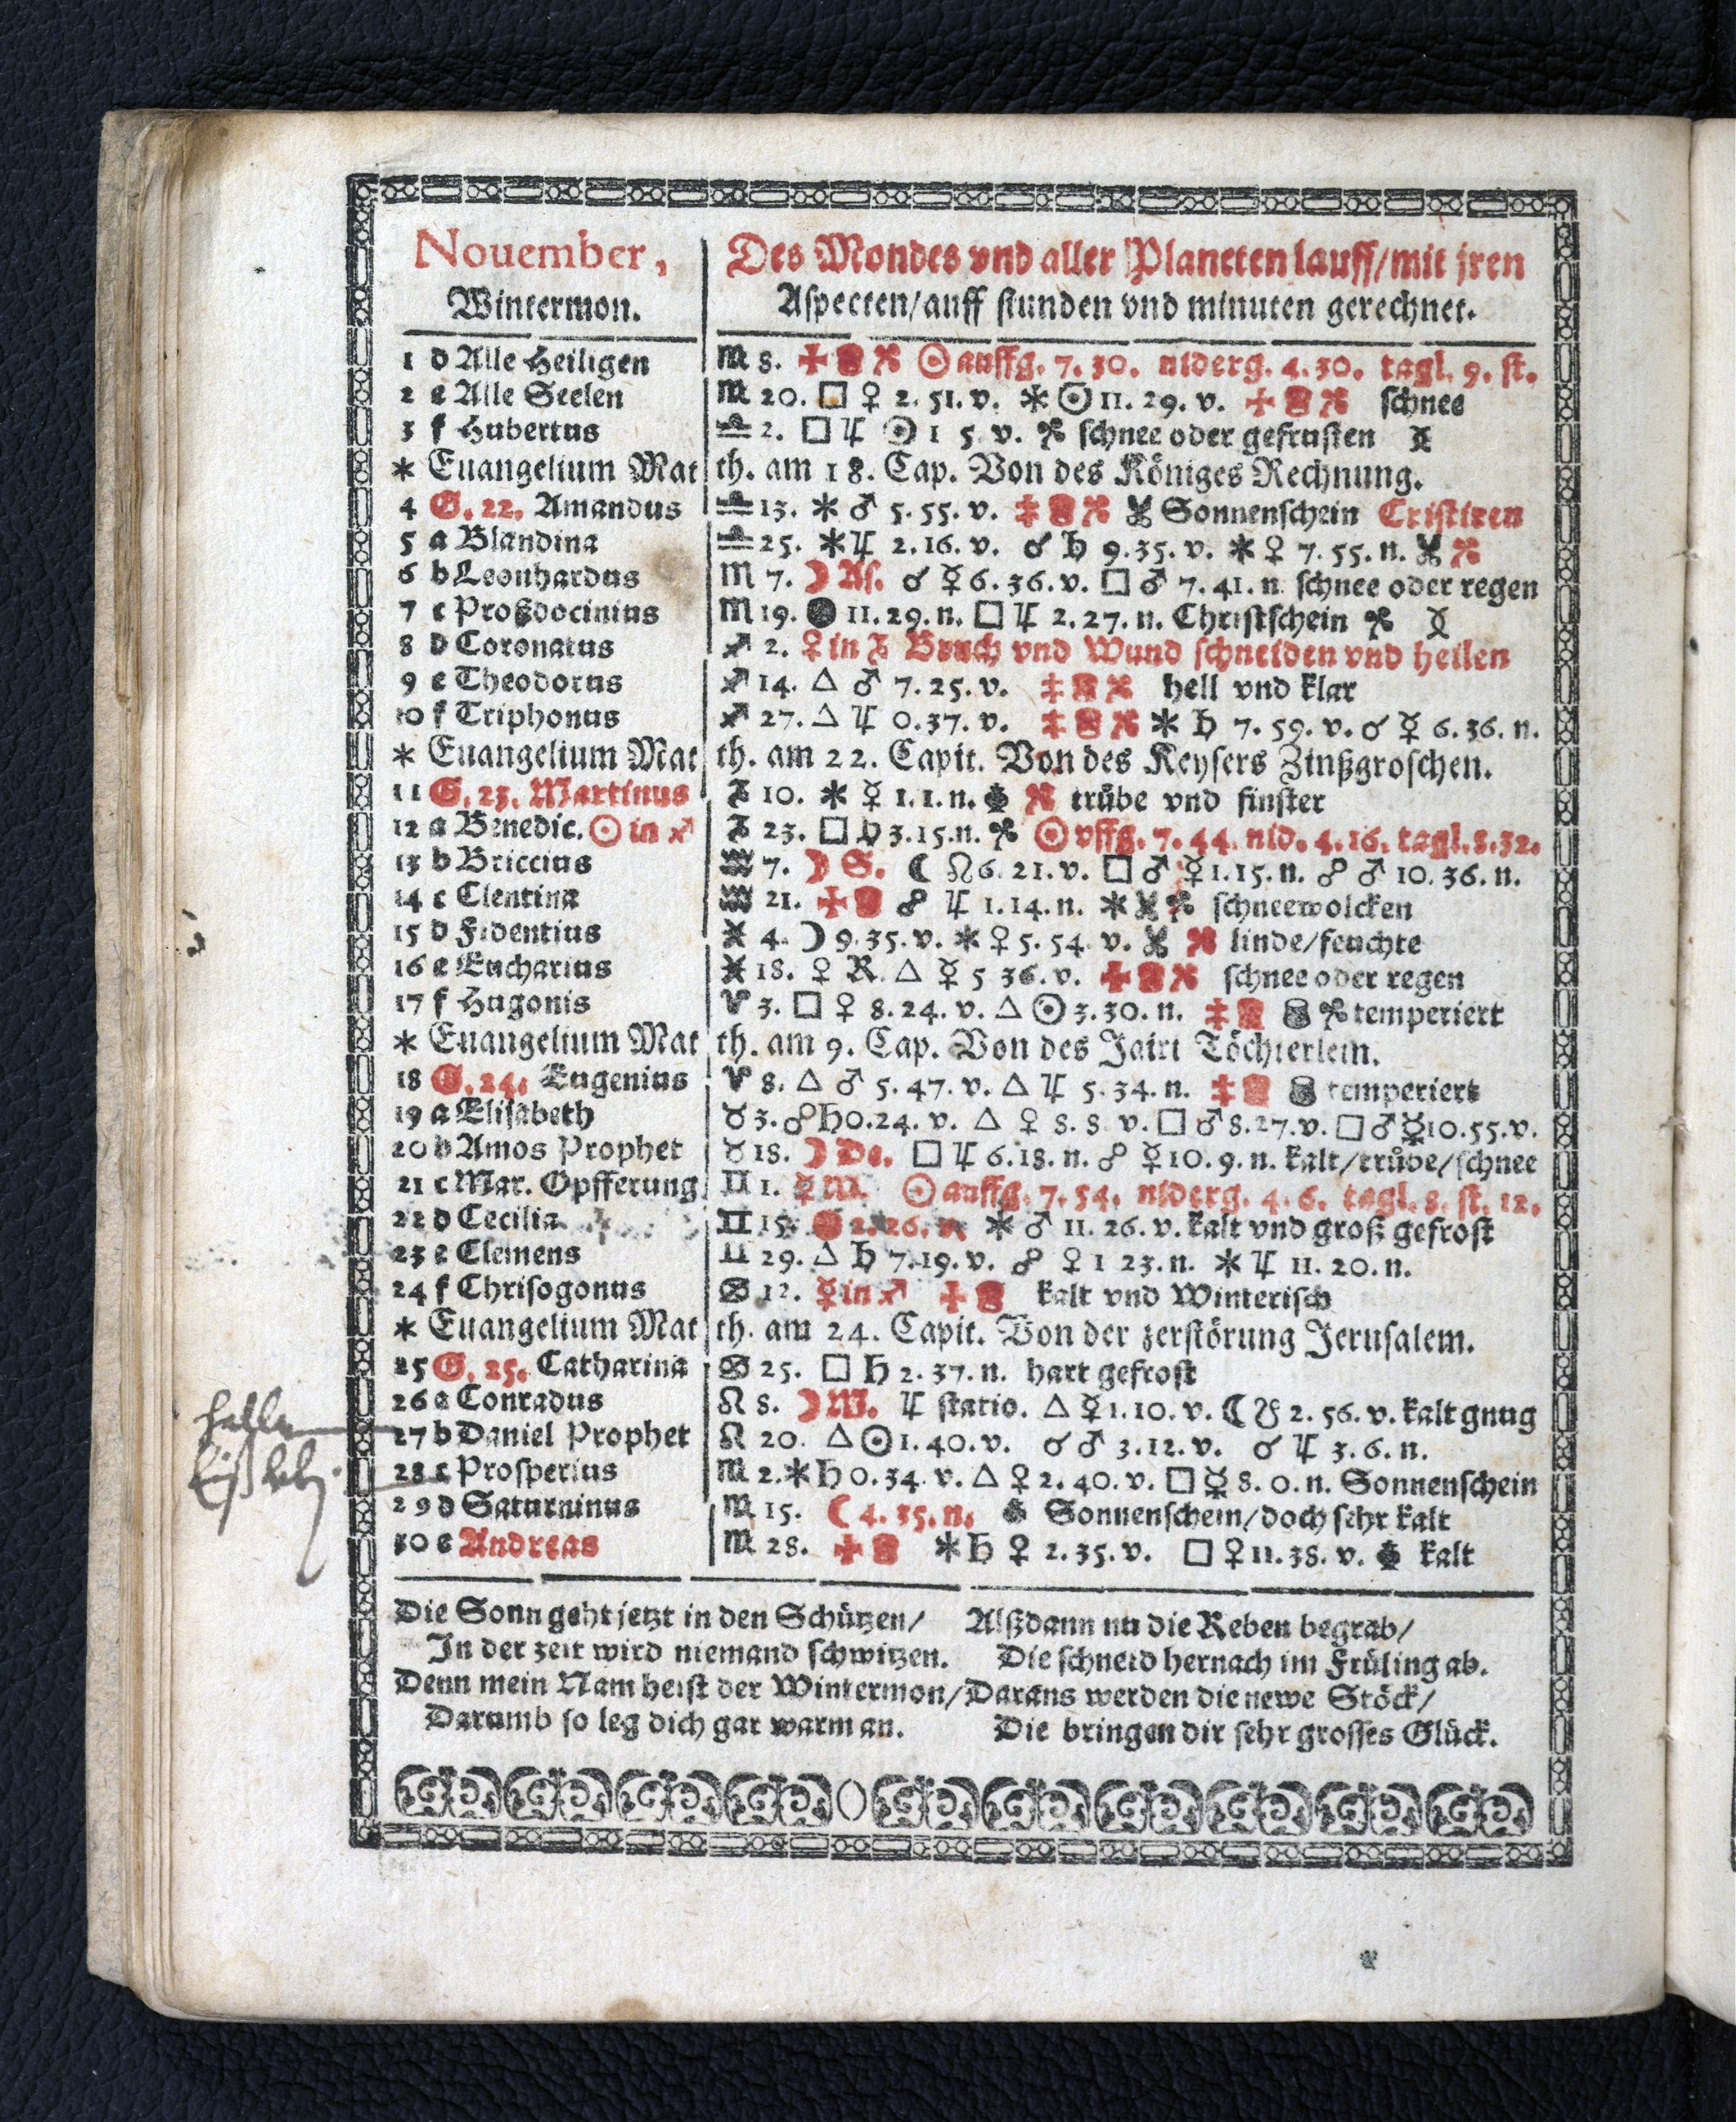 Nouember, Des Mondes vnd aller Planeten lauff/mit jren
Wintermon. Aſpecten/auff ſtunden vnd minuten gerechnet.
1 d Alle Heiligen ♍ 8. ☉ auffg. 7. 30. niderg. 4. 30. tagl. 9. ſt.
2 e Alle Seelen ♍ 20. □ ♀ 2. 51. v. ✱ ☉ 11. 29. v. ſchnee
3 f Hubertus ♎ 2. □ ♃ ☉ 1 5 v. ſchnee oder gefruſten
✱ Euangelium Mat th. am 18. Cap. Von des Königes Rechnung.
4 G. 22. Amandus ♎ 13. ✱ ♂ 5. 55. v. Sonnenſchein Criſtiren
5 a Blandina ♎ 25. ✱ ♃ 2. 16. v. ☌ ♄ 9. 35. v. ✱ ♀ 7. 55. n.
6 b Leonhardus ♏ 7. ☽ Aſ. ☌ ☿ 6. 36. v. □ ♂ 7. 41. n. ſchnee oder regen
7 c Proßdocinius ♏ 19. ● 11. 29. n. □ ♃ 2. 27. n. Chriſtſchein
8 d Coronatus ♐ 2. ♀ in ♑ Bruch vnd Wund ſchneiden vnd heilen
9 e Theodorus ♐ 14. △ ♂ 7. 25. v. hell vnd klar
10 f Triphonus ♐ 27. △ ♃ 0. 37. v. ✱ ♄ 7. 59. v. ☌ ☿ 6. 36. n.
✱ Euangelium Mat th. am 22. Capit. Von des Keyſers Zinßgroſchen.
11 G. 23. Martinus ♑ 10. ✱ ☿ 1. 1. n. trübe vnd finſter
12 a Benedic. ☉ in ♐ ♑ 23. □ ♄ 3. 15. n. ☉ vffg. 7. 44. nid. 4. 16. tagl. 8. 32.
13 b Briccius ♒ 7. ☽ S. ☾ ☊ 6. 21. v. □ ♂ ☿ 1. 15. n. ☍ ♂ 10. 36. n.
14 c Clentina ♒ 21. ☍ ♃ 1. 14. n. ✱ ſchneewolcken
15 d Fidentius ♓ 4. ☽ 9. 35. v. ✱ ♀ 5. 54. v. linde/feuchte
16 e Eucharius ♓ 18. ♀ R. △ ☿ 5 36. v. ſchnee oder regen
17 f Hugonis ♈ 3. □ ♀ 8. 24. v. △ ☉ 3. 30. n. temperiert
✱ Euangelium Mat th. am 9. Cap. Von des Jairi Töchterlein.
18 G. 24. Eugenius ♈ 8. △ ♂ 5. 47. v. △ ♃ 5. 34. n. temperiert
19 a Eliſabeth ♉ 3. ☍ ♄ 0. 24. v. △ ♀ 8. 8 v. □ ♂ 8. 27. v. □ ♂ ☿ 10. 55. v.
20 b Amos Prophet ♉ 18. ☽ De. □ ♃ 6. 18. n. ☍ ☿ 10. 9. n. kalt/trübe/ſchnee
21 c Mar. Opfferung ♊ 1. ☿ M. ☉ auffg. 7. 54. niderg. 4. 6. tagl. 8. ſt. 12.
22 d Cecilia ♊ 15. 2. 26. n. ✱ ♂ 11. 26. v. kalt vnd groß gefroſt
23 e Clemens ♊ 29. △ ♄ 7. 19. v. ☍ ♀ 1 23. n. ✱ ♃ 11. 20. n.
24 f Chriſogonus ♋ 12. ☿ in ♐ kalt vnd Winteriſch
✱ Euangelium Mat th. am 24. Capit. Von der zerſtörung Jeruſalem.
25 G. 25. Catharina ♋ 25. □ ♄ 2. 37. n. hart gefroſt
26 a Conradus ♌ 8. ☽ M. ♃ ſtatio. △ ☿ 1. 10. v. ☾ ☋ 2. 56. v. kalt gnug
27 b Daniel Prophet ♌ 20. △ ☉ 1. 40. v. ☌ ♂ 3. 12. v. ☌ ♃ 3. 6. n.
28 c Proſperius ♍ 2. ✱ ♄ 0. 34. v. △ ♀ 2. 40. v. □ ☿ 8. 0. n. Sonnenſchein
29 d Saturninus ♍ 15. ☾ 4. 35. n. Sonnenſchein/doch ſehr kalt
30 e Andreas ♍ 28. ✱ ♄ ♀ 2. 35. v. □ ♀ 11. 38. v. kalt
Die Sonn geht jetzt in den Schützen/
In der zeit wird niemand ſchwitzen.
Denn mein Nam heiſt der Wintermon/
Darumb ſo leg dich gar warm an.
Alßdann nu die Reben begrab/
Die ſchneid hernach im Früling ab.
Daraus werden die newe Stöck/
Die bringen dir ſehr groſſes Glück.